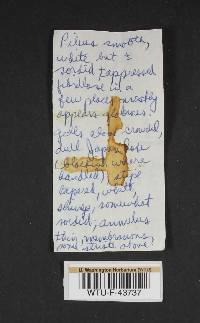 Pileus smooth,
white but ±
sordid & appressed
fibrillose in a
few places, mostly
appears glabrous.
gills close, crowded,
dull Japan rose
(blackish where
handled), stipe
tapered, white,
shiny, somewhat
sordid; annulus
thin, membranous,
some striate above.
U. Washington Herbarium (WTU)
WTU-F-43737